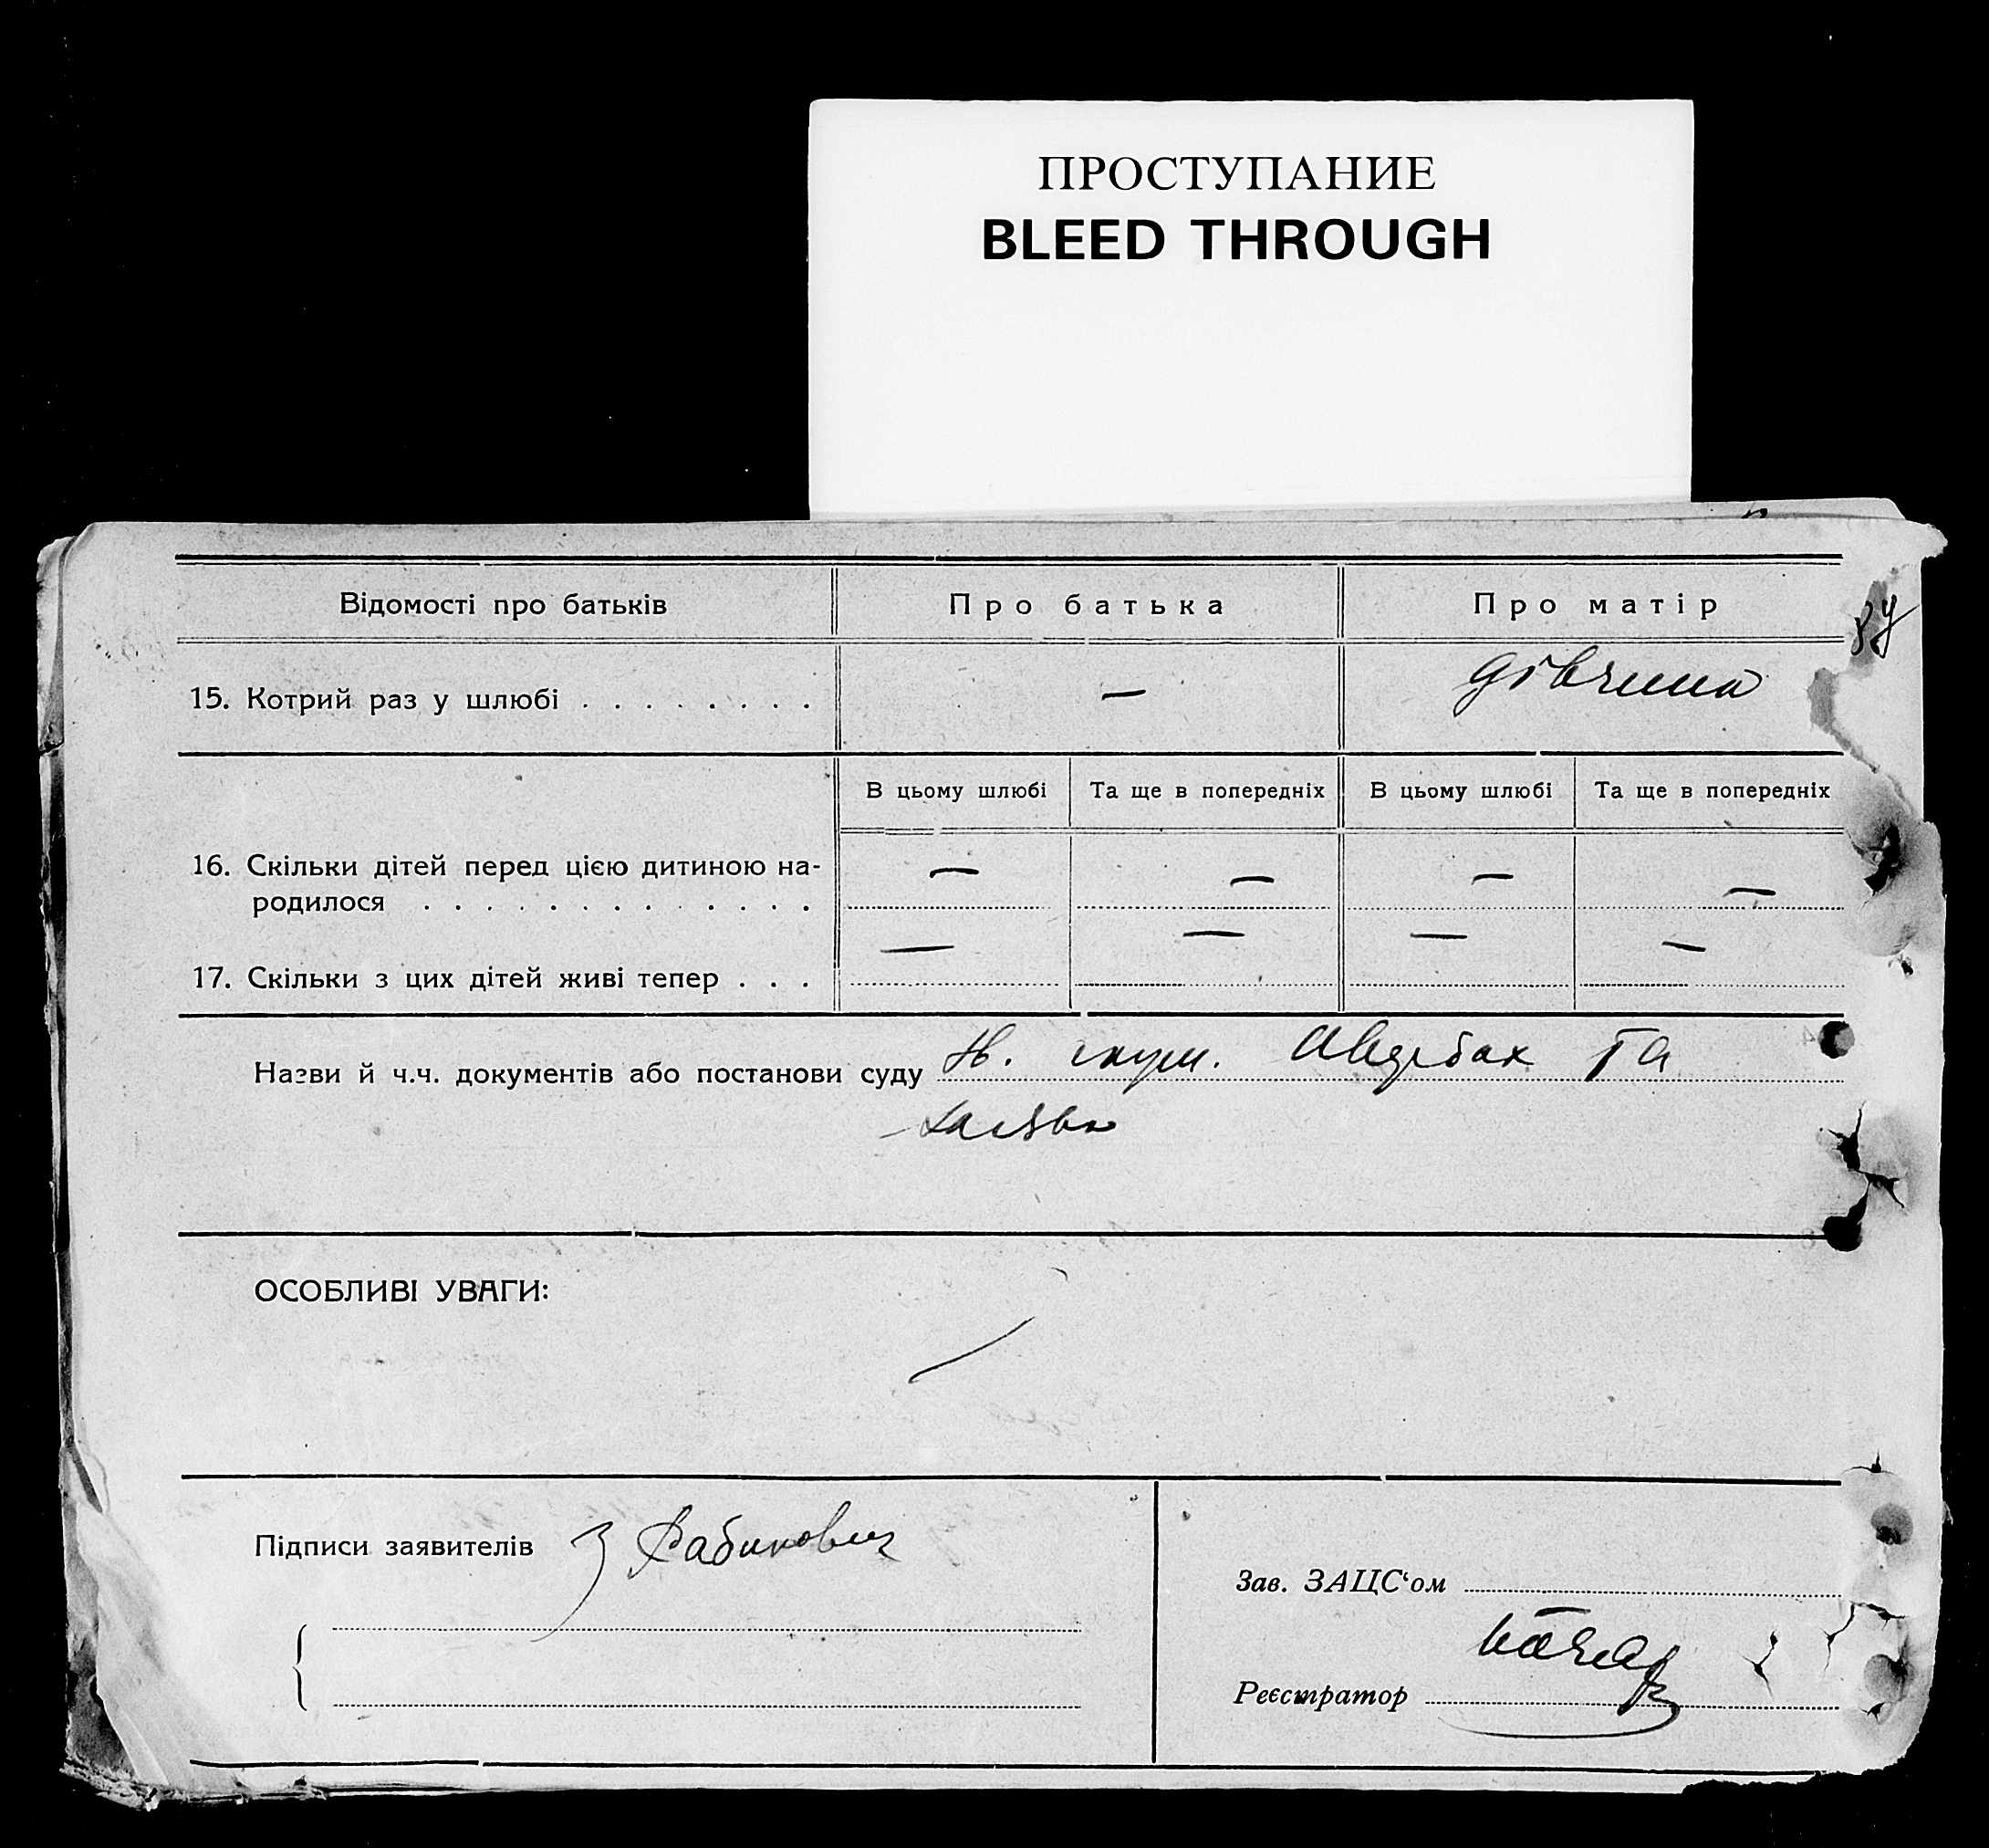 ПРОСТУПАНИЕ
BLEED THROUGH
Відомості про батьків
Про батька
Про матір
15. Котрий раз у шлюбі . . . . . . . .
—
дівчина
В цьому шлюбі
Та ще в попередніх
В цьому шлюбі
Та ще в попередніх
16. Скільки дітей перед цією дитиною на-
родилося . . . . . . . . . . . . . .
— — — —
17. Скільки з цих дітей живі тепер . . .
— — — —
Назви й ч.ч. документів або постанови суду
та
ОСОБЛИВІ УВАГИ:
Підписи заявителів З Рабинович
Зав. ЗАЦС‘ом
Реєстратор